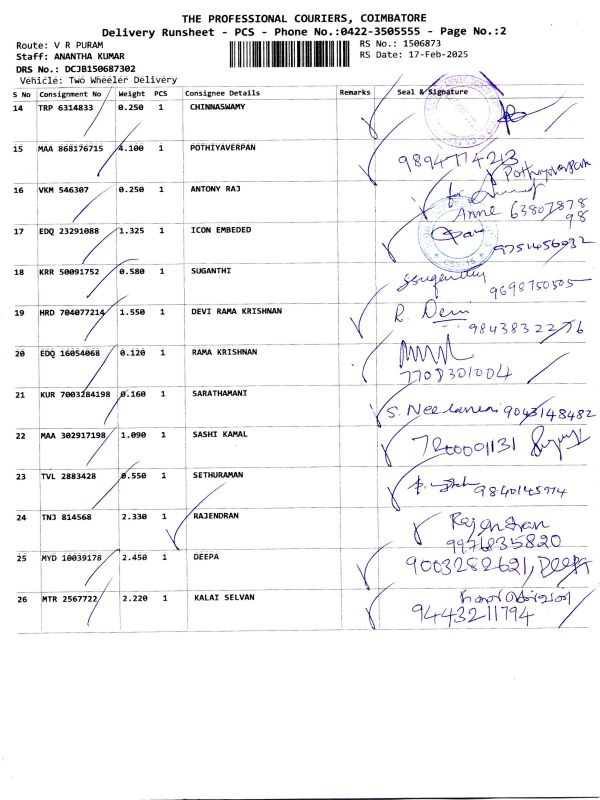 THE PROFESSIONAL COURIERS, COIMBATORE
Delivery Runsheet - PCS - Phone No.:0422-3505555 - Page No.:2
Route: V R PURAM RS No.: 1506873
Staff: ANANTHA KUMAR RS Date: 17-Feb-2025
DRS No.: DCJB150687302
Vehicle: Two Wheeler Delivery
S No Consignment No Weight PCS Consignee Details Remarks Seal & Signature
14 TRP 6314833 0.250 1 CHINNASWAMY
15 MAA 868176715 4.100 1 POTHIYAVERPAN
9894774213
Pothiyaverpan
16 VKM 546307 0.250 1 ANTONY RAJ
Anne 63807878
98
17 EDQ 23291088 1.325 1 ICON EMBEDED
9751456032
18 KRR 50091752 0.580 1 SUGANTHI
9698750505
19 HRD 704077214 1.550 1 DEVI RAMA KRISHNAN R. Devi
9843832276
20 EDQ 16054068 0.120 1 RAMA KRISHNAN
7708301004
21 KUR 7003284198 0.160 1 SARATHAMANI
S. Neelaveni 9043148482
22 MAA 302917198 1.090 1 SASHI KAMAL
7200001131
23 TVL 2883428 0.550 1 SETHURAMAN
9840145974
24 TNJ 814568 2.330 1 RAJENDRAN Rajendran
9971835820
25 MYD 10039178 2.450 1 DEEPA 9003282621, DEEPA
26 MTR 2567722 2.220 1 KALAI SELVAN
9443211794